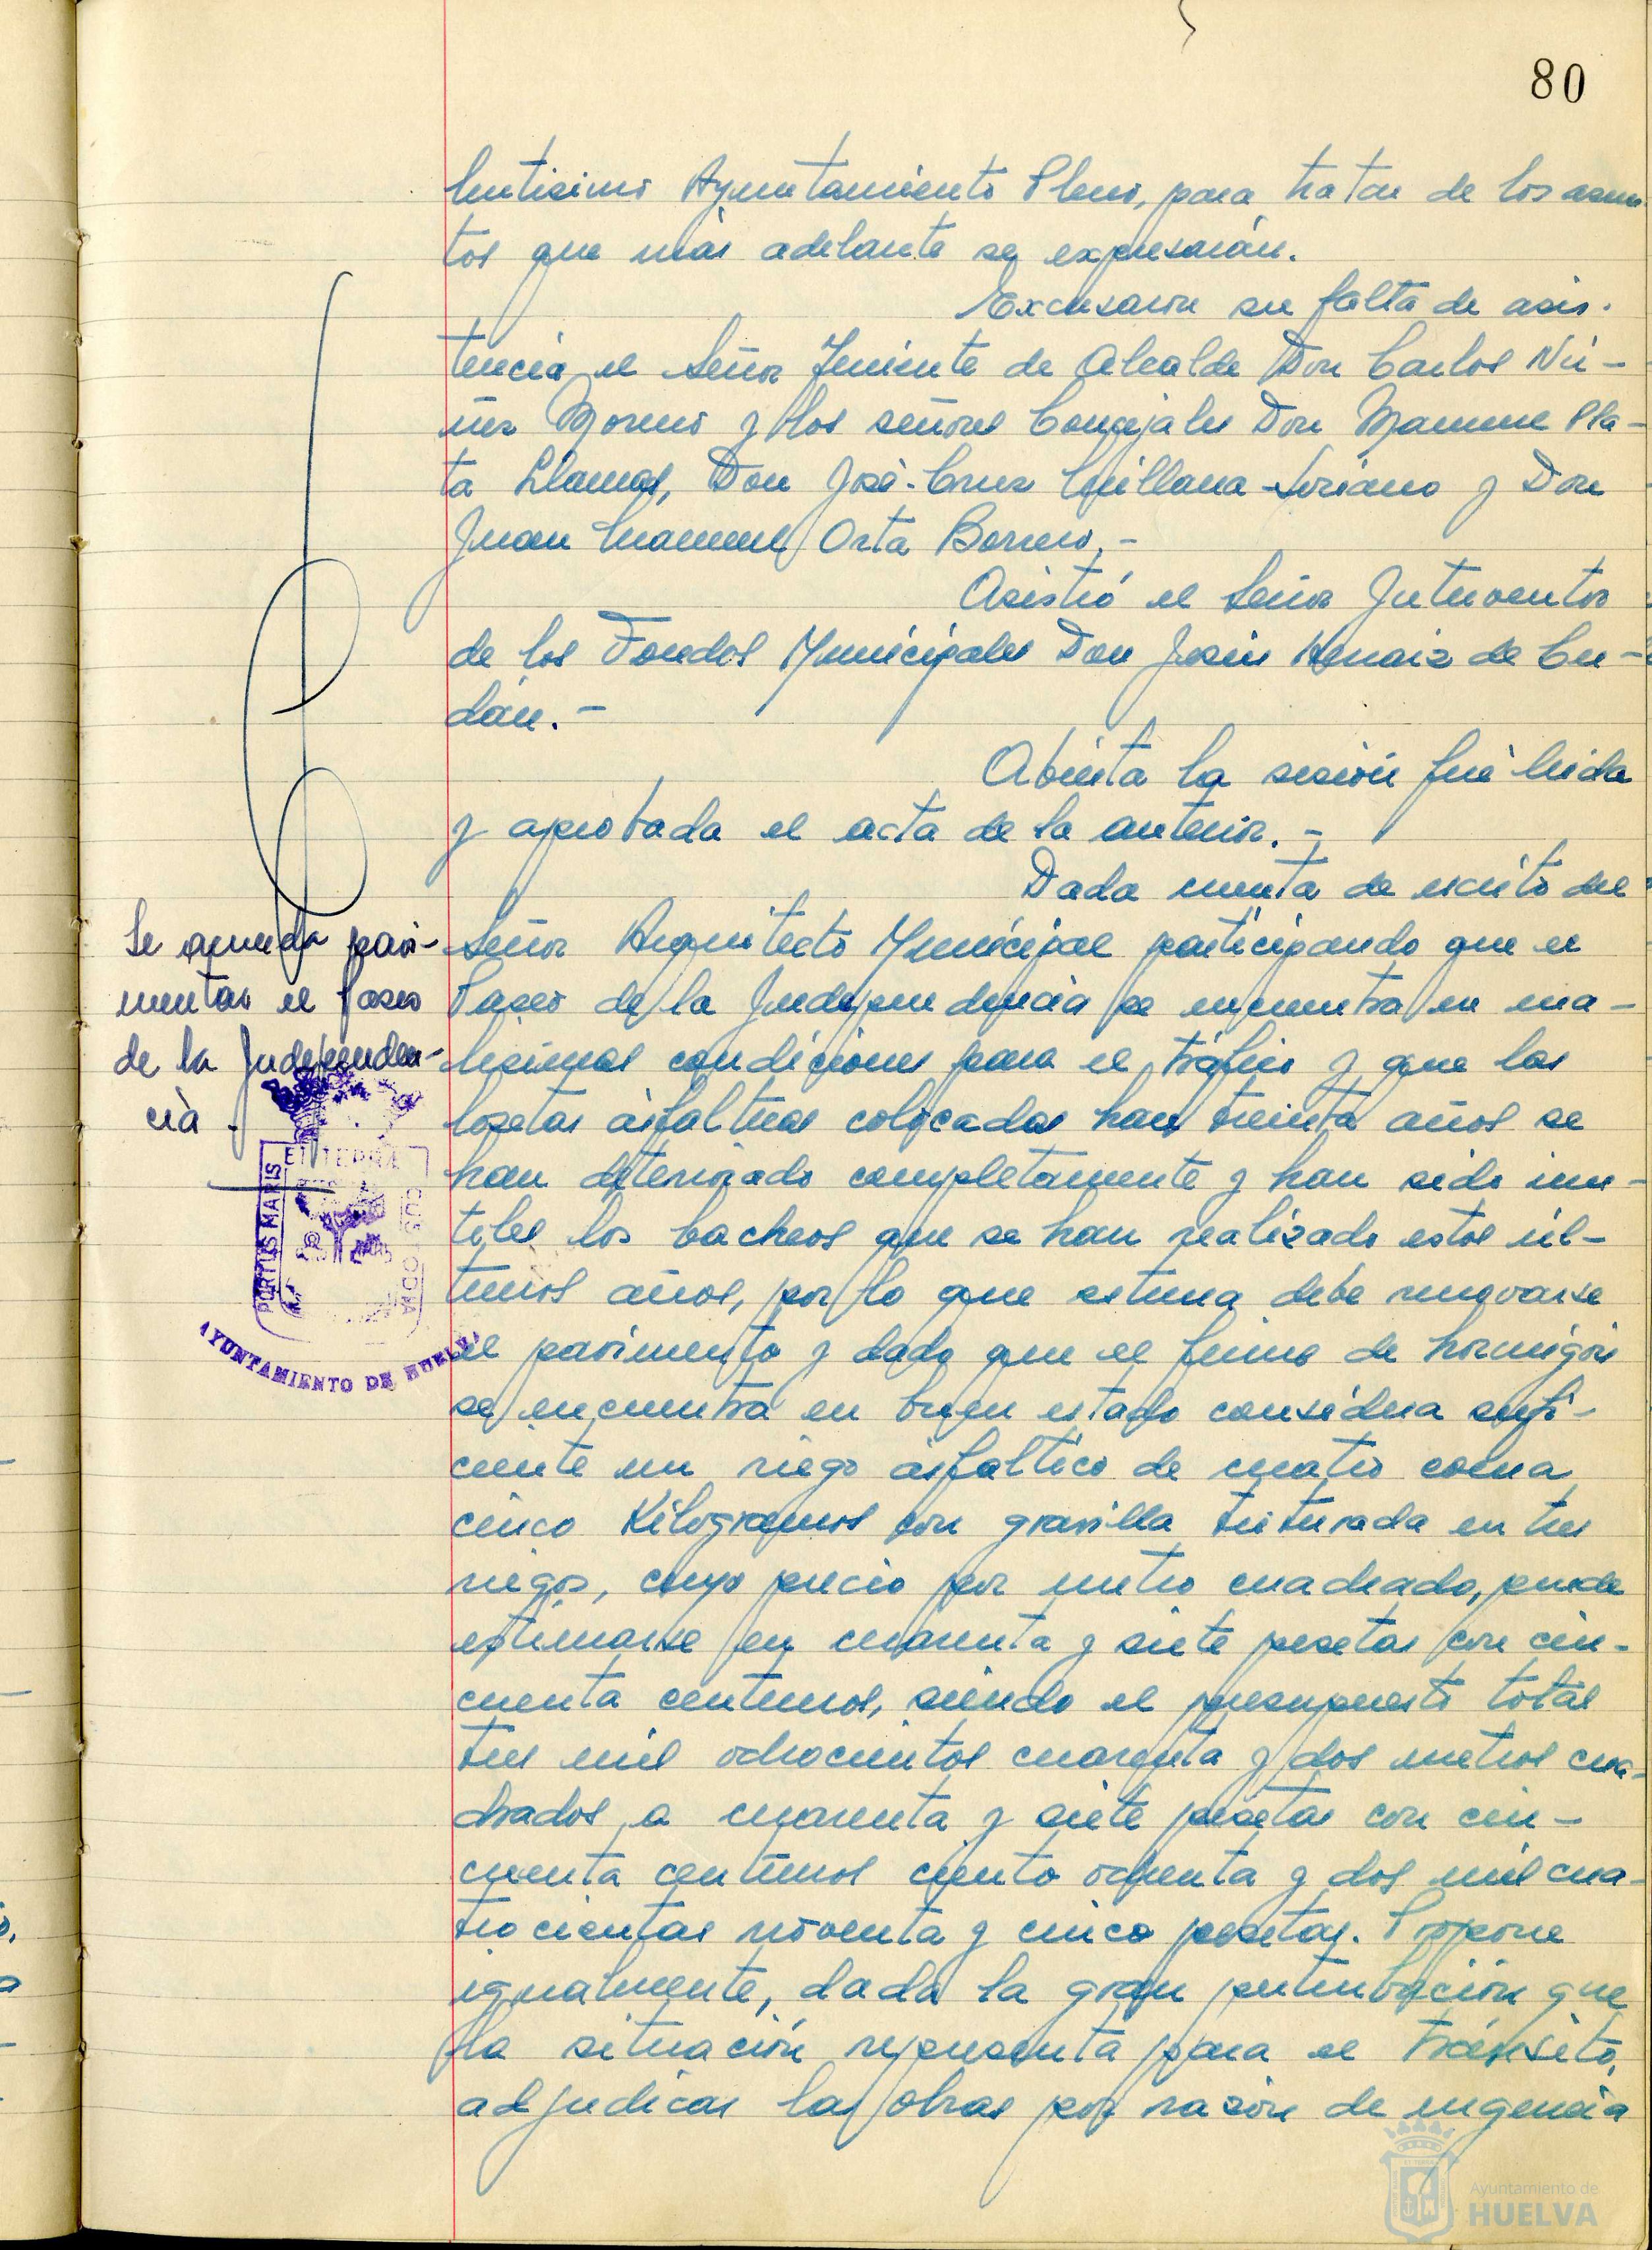 80
lentisimo Ayuntamiento Pleno, para tratar de los asun-
tos que más adelante se expresarán.
Excusaron su falta de asis-
tencia, el Señor Teniente de Alcalde Don Carlos Nú-
ñez Moreno y los señores Concejales Don Manuel Pla-
ta Llamas, Don José-Cruz Quillana-Soriano y Don
Juan Manuel Orta Borrero.-
Asistió el Señor Interventor
de los Fondos Municipales Don Jesús Henaiz de Cen-
dán.-
Abierta la sesión fué leida
y aprobada el acta de la anterior.-
Dada cuenta de escrito del
Se acuerda pavi-
mentar el Paseo
de la Independen-
cia.
Señor Arquitecto Municipal participando que el
Paseo de la Independencia se encuentra en ma-
lisimas condiciones para el tráfico y que las
losetas ásfalticas colocadas hace treinta años se
han deteriorado completamente y han sido inu-
tiles los bacheos que se han realizado estos úl-
timos años, por lo que estima debe renovarse
el pavimento y dado que el firme de hormigón
se encuentra en buen estado considera sufi-
ciente un riego ásfaltico de cuatro coma
cinco Kilogramos con gravilla triturada en tres
riegos, cuyo precio por metro cuadrado, puede
estimarse en cuarenta y siete pesetas con cin-
cuenta centimos, siendo el presupuesto total
tres mil ochocientos cuarenta y dos metros cua-
drados a cuarenta y siete pesetas con cin-
cuenta centimos ciento ochenta y dos mil cua-
trocientas noventa y cinco pesetas. Propone
igualmente, dada la gran perturbación que
la situación representa para el tránsito,
adjudicar las obras por razón de urgencia
PORTUS MARIS
ET TERRAE
CUSTODIA
AYUNTAMIENTO DE HUELVA
Ayuntamiento de
HUELVA